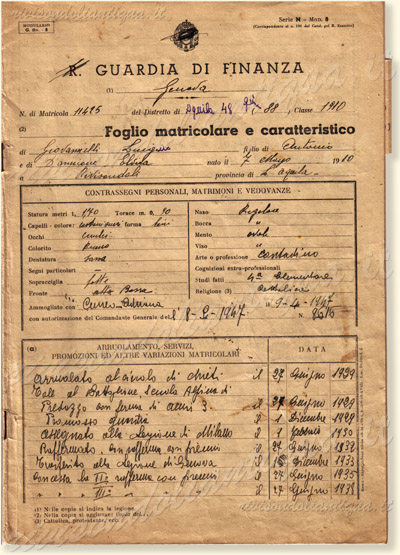 MODULARIO
G. Fin. - 3
Serie M - MOD. 3
R. GUARDIA DI FINANZA
(1) Genova
N. di Matricola 11425 del Distretto di Aquila 48 88, Classe 1910
(2) Foglio matricolare e caratteristico
di Giovannelli figlio di Antonio
e di D'Amicone Elisa nato il 7 Maggio 1910
a provincia di L'Aquila
CONTRASSEGNI PERSONALI, MATRIMONI E VEDOVANZE
Statura metri 1,70 Torace m. 0,90
Capelli - colore: forma lisci
Occhi
Colorito Bruno
Dentatura sana
Segni particolari
Sopracciglia folte
Fronte alta Bassa
Ammogliato con Cuneo Adriana
con autorizzazione del Comandante Generale del 8-2-1947
Naso Regolare
Bocca "
Mento ovale
Viso "
Arte o professione Contadino
Cognizioni extra-professionali
Studi fatti 4ª elementare
Religione (3) Cattolica
il 9-4-1947
N.
(a) ARRUOLAMENTO, SERVIZI,
PROMOZIONI ED ALTRE VARIAZIONI MATRICOLARI
DATA
Arruolato al circolo di Chieti il 27 Giugno 1929
Tale al Battaglione Scuola Allievi di
Predazzo con ferma di anni 3 il 27 Giugno 1929
Promosso guardia il 1 Dicembre 1929
Assegnato alla Legione di Milano il 1930
Raffermato con rafferma con premio il 27 Giugno 1932
Trasferito alla Legione di Genova il Dicembre 1933
Concessa la IIª rafferma con premio il 27 Giugno 1935
" " IIIª " " " il 27 Giugno 1938
(1) Nella copia si indica la legione.
(2) Nella copia si aggiunge: Copia del
(3) Cattolica, protestante, ecc.
visisoudoliantigua.it